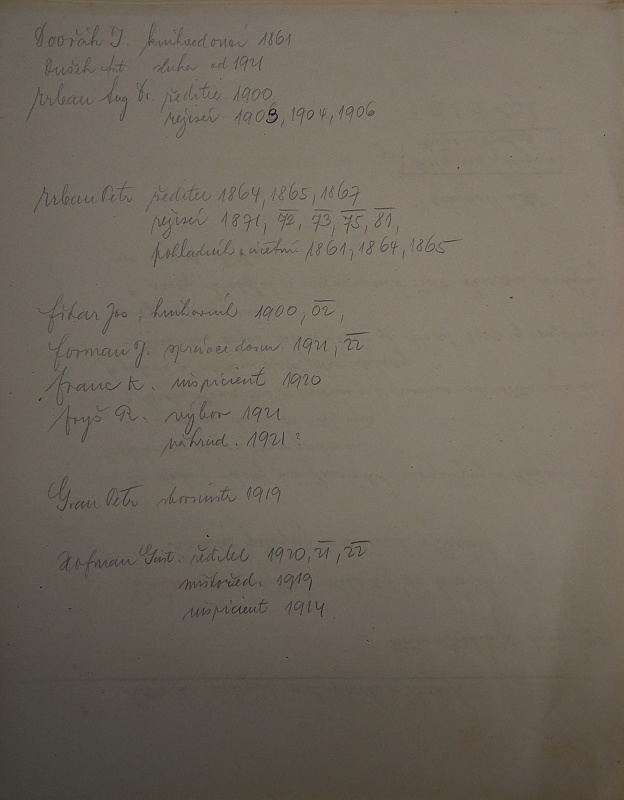 Dvořák J. knihvedoucí 1861
Dušek Ant. sluha od 1921
Urban Aug Dr. ředitel 1900
rejisér 1903, 1904, 1906
Urban Petr ředitel 1864, 1865, 1867
rejisér 1871, 72, 73, 75, 81,
pokladník a účetní 1861, 1864, 1865
Jos, knihovník 1900, 02,
Forman J. správce domu 1921, 22
Franc K. inspicient 1920
Fryš R. výbor 1921
náhrad. 1921?
Petr sbormistr 1919
Hofman Gust. ředitel 1920, 21, 22
místořed. 1919
inspicient 1914